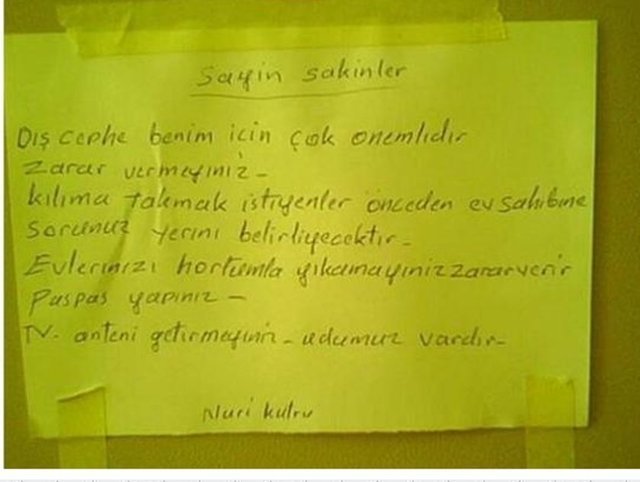 Sayin sakinler
Dış cephe benim için çok onemlidir
Zarar vermeyiniz -
kılıma takmak istiyenler önceden ev sahibine
sorunuz yerini belirliyecektir -
Evlerinizi hortumla yıkamayiniz zarar verir
Paspas yapınız -
TV. anteni getirmeyiniz - udumuz vardır -
Nuri